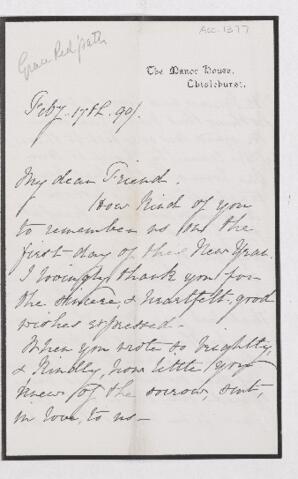 Acc. 1377
Grace Redpath
The Manor House,
Chislehurst.
Feby. 17th. 90/.
My dear Friend.
How kind of you
to remember us on the
first day of the New Year.
I thank you for
the sincere, & heartfelt, good
wishes expressed.
When you wrote so brightly,
& kindly, how little you
knew of the sorrow, sent,
in love, to us—